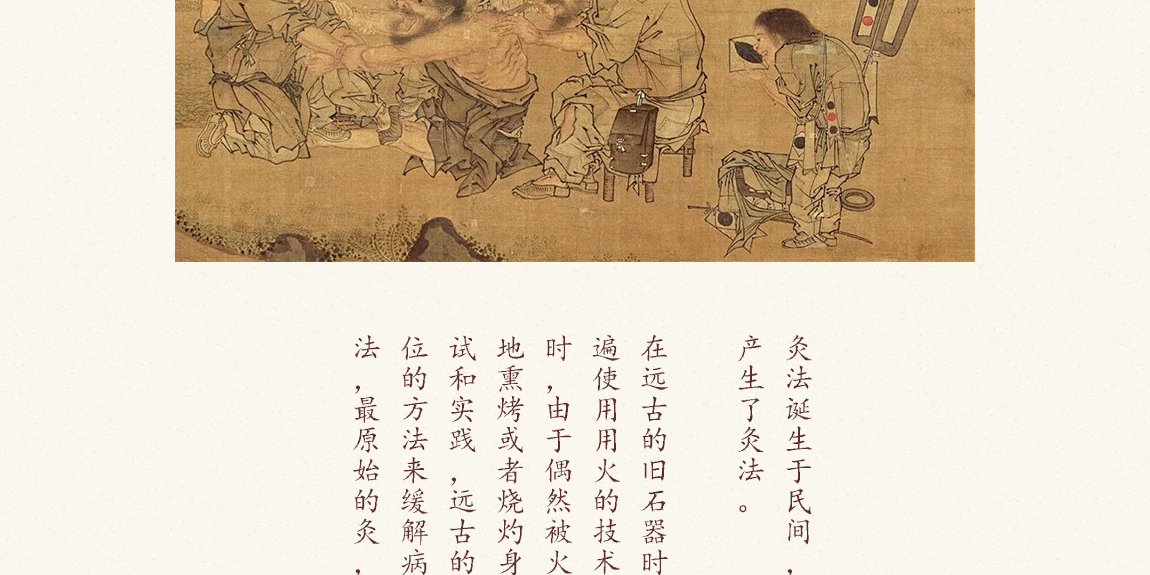 灸法诞生于民间，
产生了灸法。
在远古的旧石器时
遍使用用火的技术
时，由于偶然被火
地熏烤或者烧灼身
试和实践，远古的
位的方法来缓解病
法，最原始的灸，